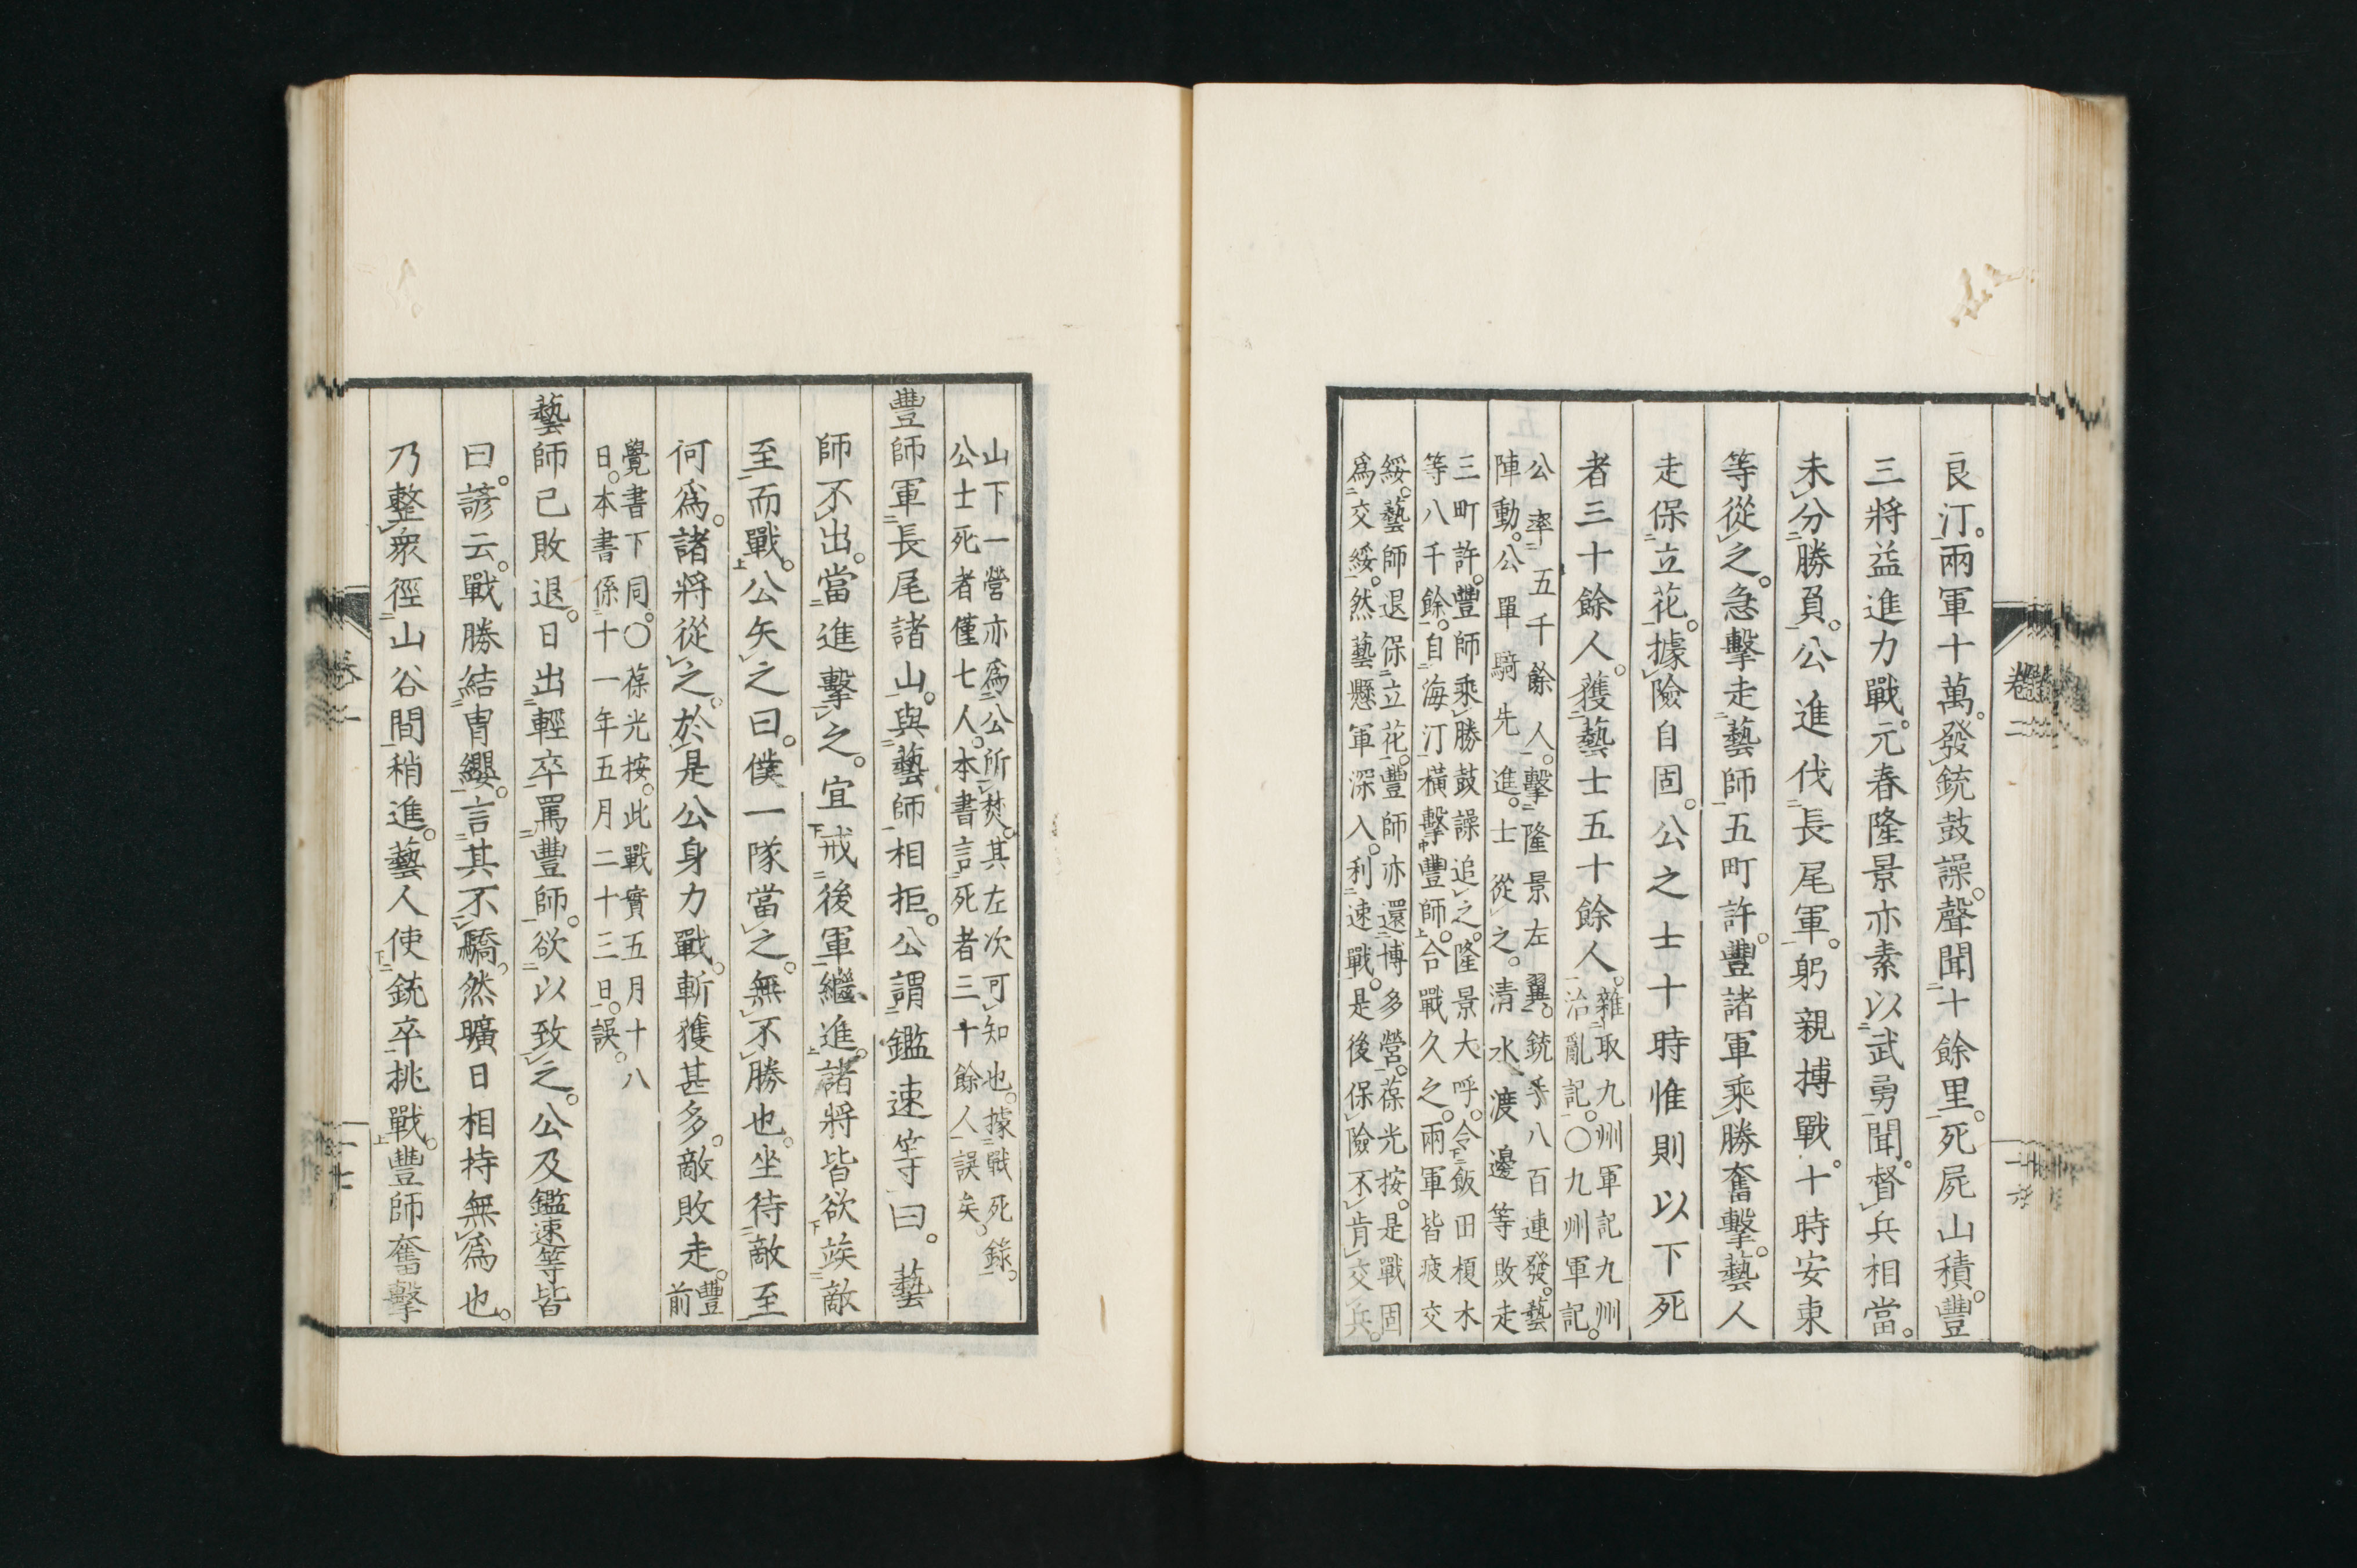 良汀。兩軍十萬。發銃鼓譟。聲聞十餘里。死屍山積。豐
三將益進力戰。元春隆景亦素以武勇聞。督兵相當。
未分勝負。公進伐長尾軍。躬親搏戰。十時安東
等從之。急擊走藝師五町許。豐諸軍乘勝奮擊。藝人
走保立花。據險自固。公之士十時惟則以下死
者三十餘人。獲藝士五十餘人。
雜取九州軍記九州
治亂記。〇九州軍記。
公率五千餘人。擊隆景左翼。銃手八百連發。藝
陣動。公單騎先進。士從之。清水渡邊等敗走
三町許。豐師乘勝鼓譟追之。隆景大呼。令飯田榎木
等八千餘。自海汀橫擊豐師。合戰久之。兩軍皆疲交
綏。藝師退保立花。豐師亦還博多營。葆光按。是戰固
爲交綏。然藝懸軍深入。利速戰。是後保險不肯交兵。
卷二
山下一營亦爲公所焚。其左次可知也。據戰死錄。
公士死者僅七人。本書言死者三十餘人。誤矣。
豐師軍長尾諸山。與藝師相拒。公謂鑑速等曰。藝
師不出。當進擊之。宜戒後軍繼進。諸將皆欲竢敵
至而戰。公矢之曰。僕一隊當之。無不勝也。坐待敵至
何爲。諸將從之。於是公身力戰。斬獲甚多。敵敗走。
豐
前
覺書下同。〇葆光按。此戰實五月十八
日。本書係十一年五月二十三日。誤。
藝師已敗退。日出輕卒罵豐師。欲以致之。公及鑑速等皆
曰。諺云。戰勝結冑纓。言其不驕。然曠日相持無爲也。
乃整衆徑山谷間稍進。藝人使銃卒挑戰。豐師奮擊